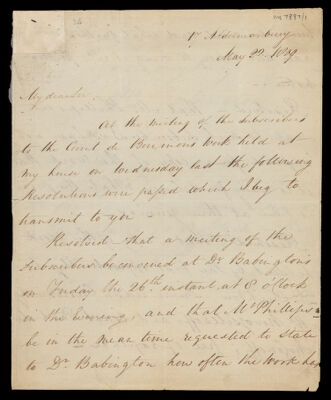 MS 7887/1
17 Aldermanbury
May 22. 1809
My dear Sir
At the meeting of the Subscribers
to the Count de Bournons Work held at
my house on Wednesday last the following
Resolutions were passed which I beg to
transmit to you
Resolved – that a meeting of the
Subscribers be convened at Dr Babington's
on Friday the 26th instant at 8 o'Clock
in the Evening, and that Mr Phillips
be in the mean time requested to state
to Dr Babington how often the Work has